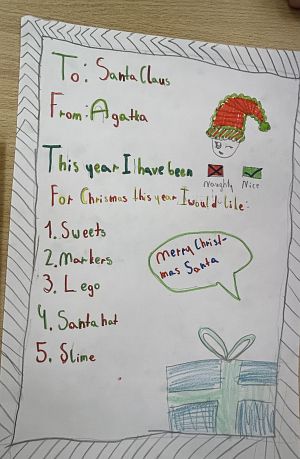 To: Santa Claus
From: Agatha
This year I have been
Naughty Nice
For Chrismas this year I would like:
1. Sweets
2. Markers
3. Lego
4. Santa hat
5. Slime
Merry Christ-
mas Santa